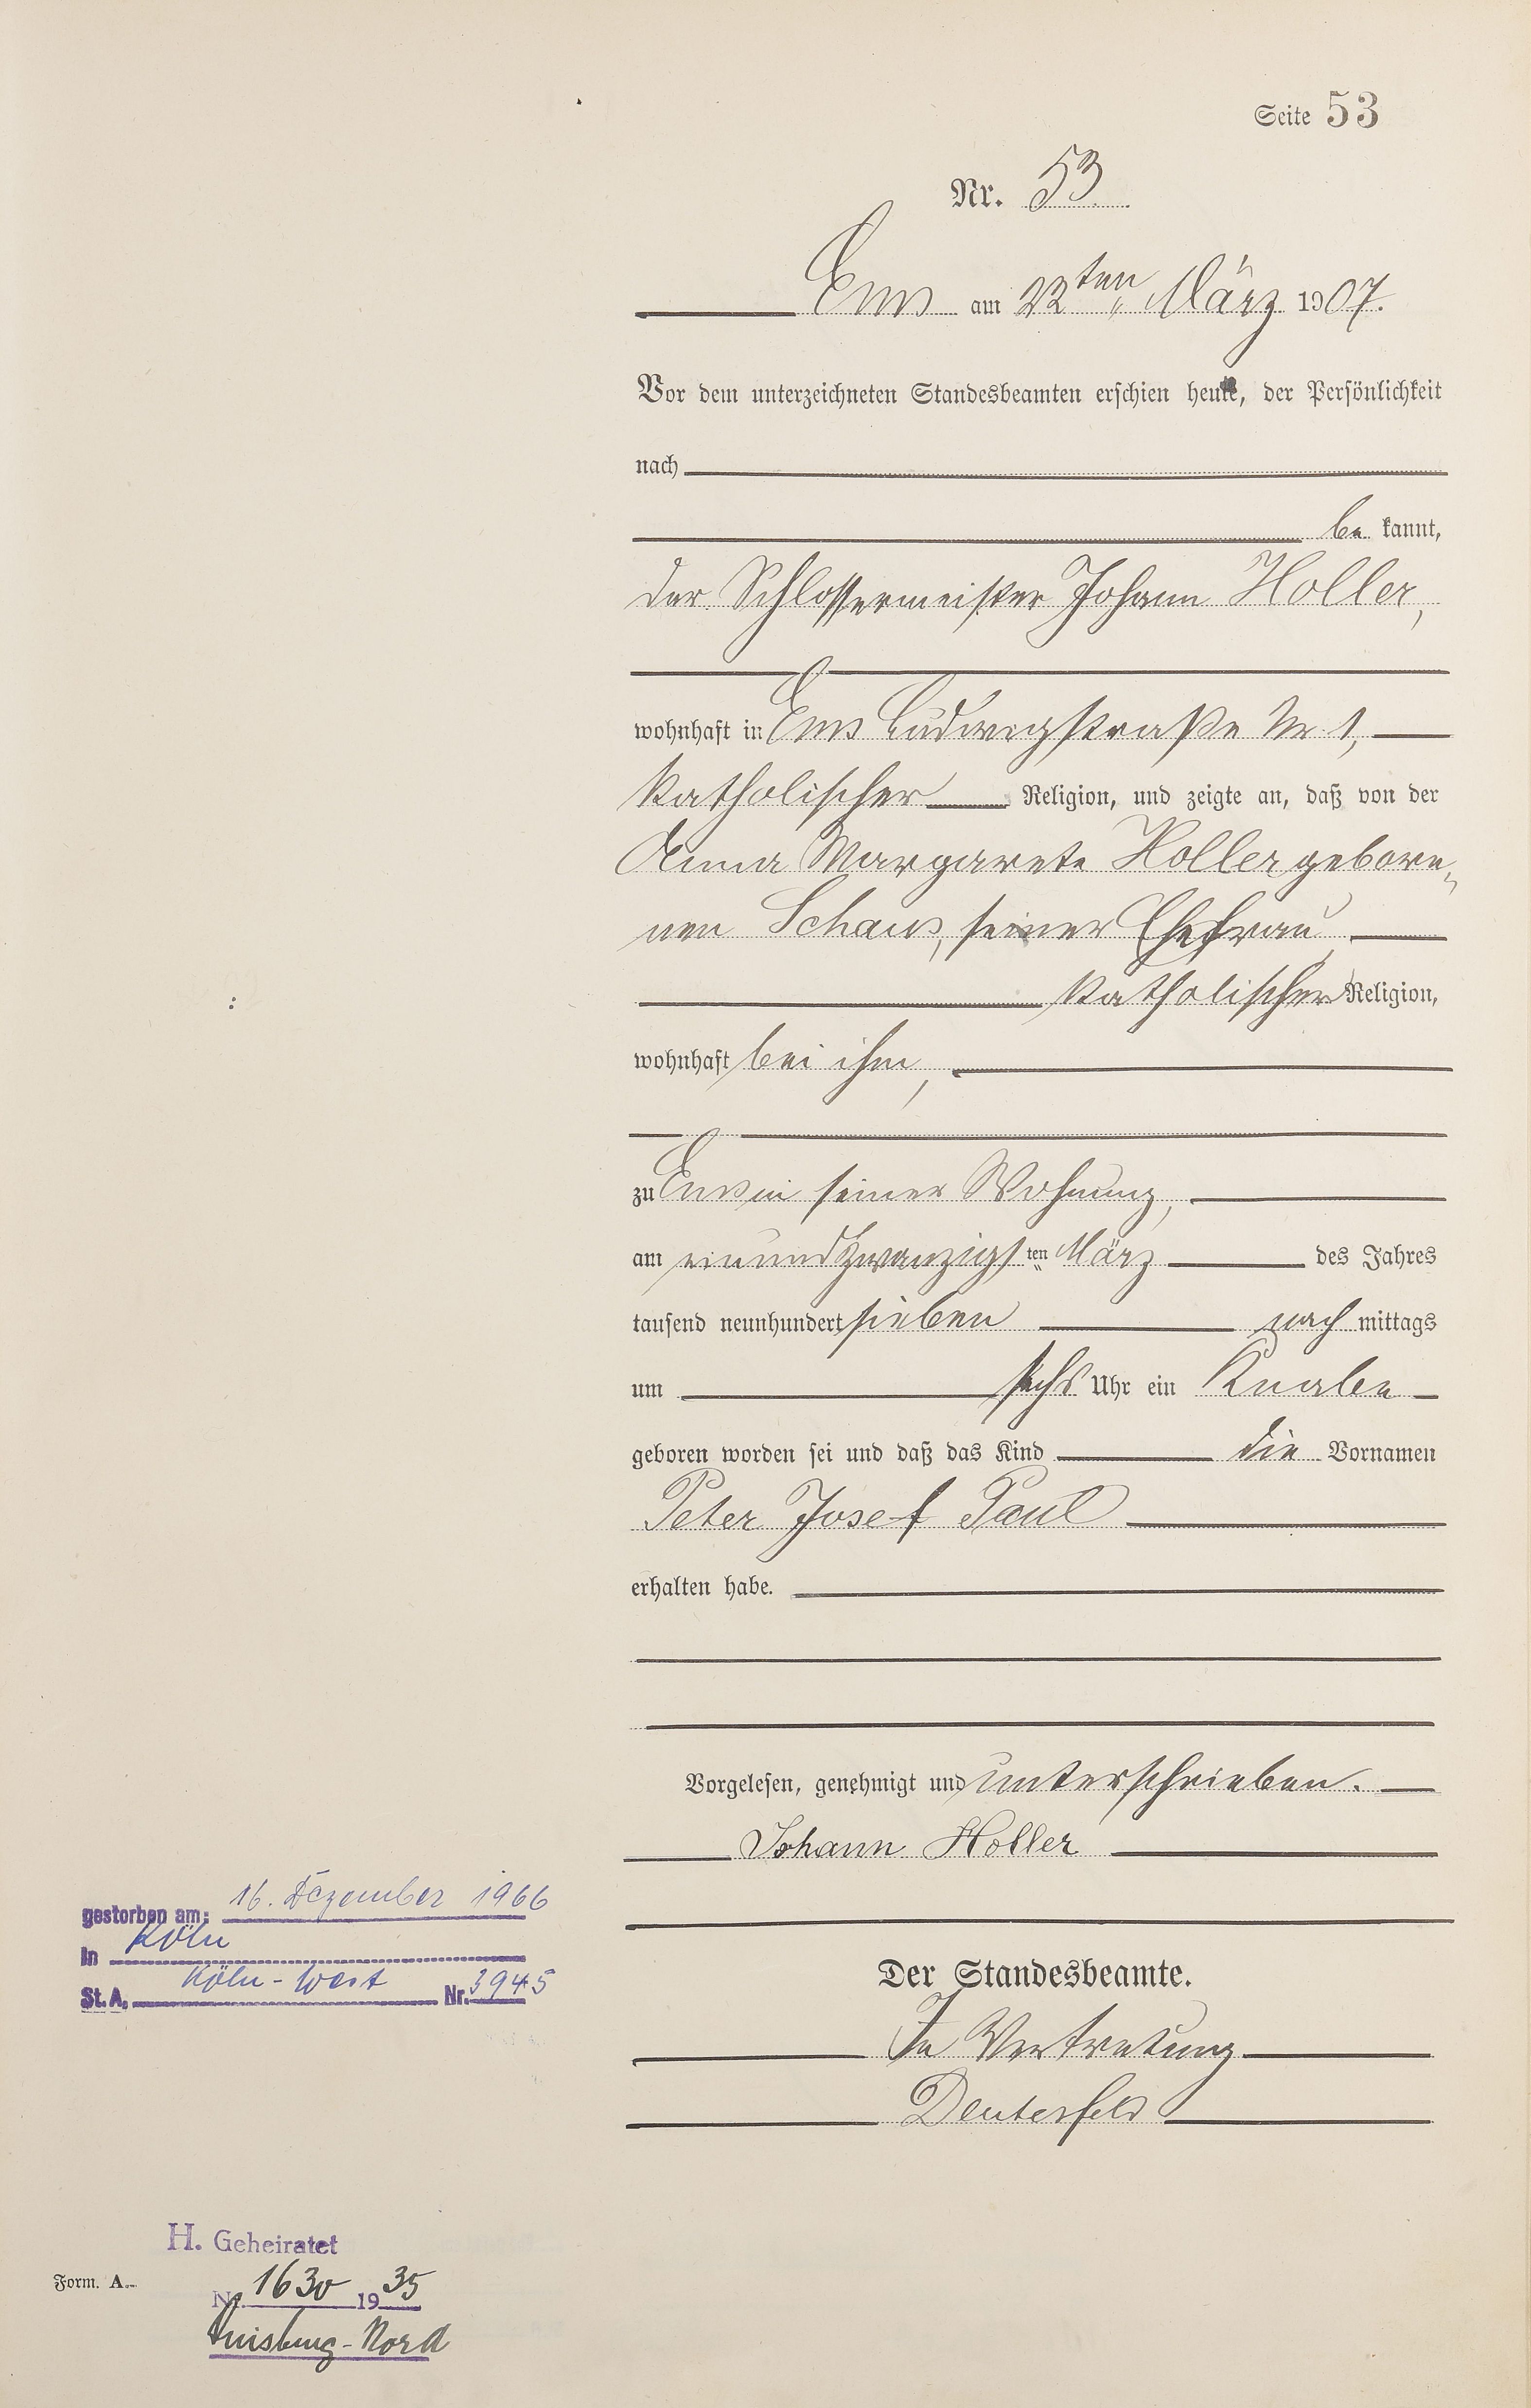 Seite 53
Nr. 53
Ems am 22ten März 1907.
Vor dem unterzeichneten Standesbeamten erschien heute, der Persönlichkeit
nach
be kannt,
der Schlossermeister Johann Holler,
wohnhaft in Ems Ludwigstraße Nr 1,
katholischer Religion, und zeigte an, daß von der
Anna Margarete Holler gebore-
nen Schaus, seiner Ehefrau,
katholischer Religion,
wohnhaft bei ihm,
zu Ems in seiner Wohnung,
am einundzwanzigsten März des Jahres
tausend neunhundert sieben nach mittags
um sechs Uhr ein Knabe
geboren worden sei und daß das Kind die Vornamen
Peter Josef Paul
erhalten habe.
Vorgelesen, genehmigt und unterschrieben.
Johann Holler
Der Standesbeamte.
In Vertretung
gestorben am: 16. Dezember 1966
in Köln
St.A. Köln-West Nr. 3945
H. Geheiratet
Form. A.
Nr. 1630 1935
Duisburg-Nord